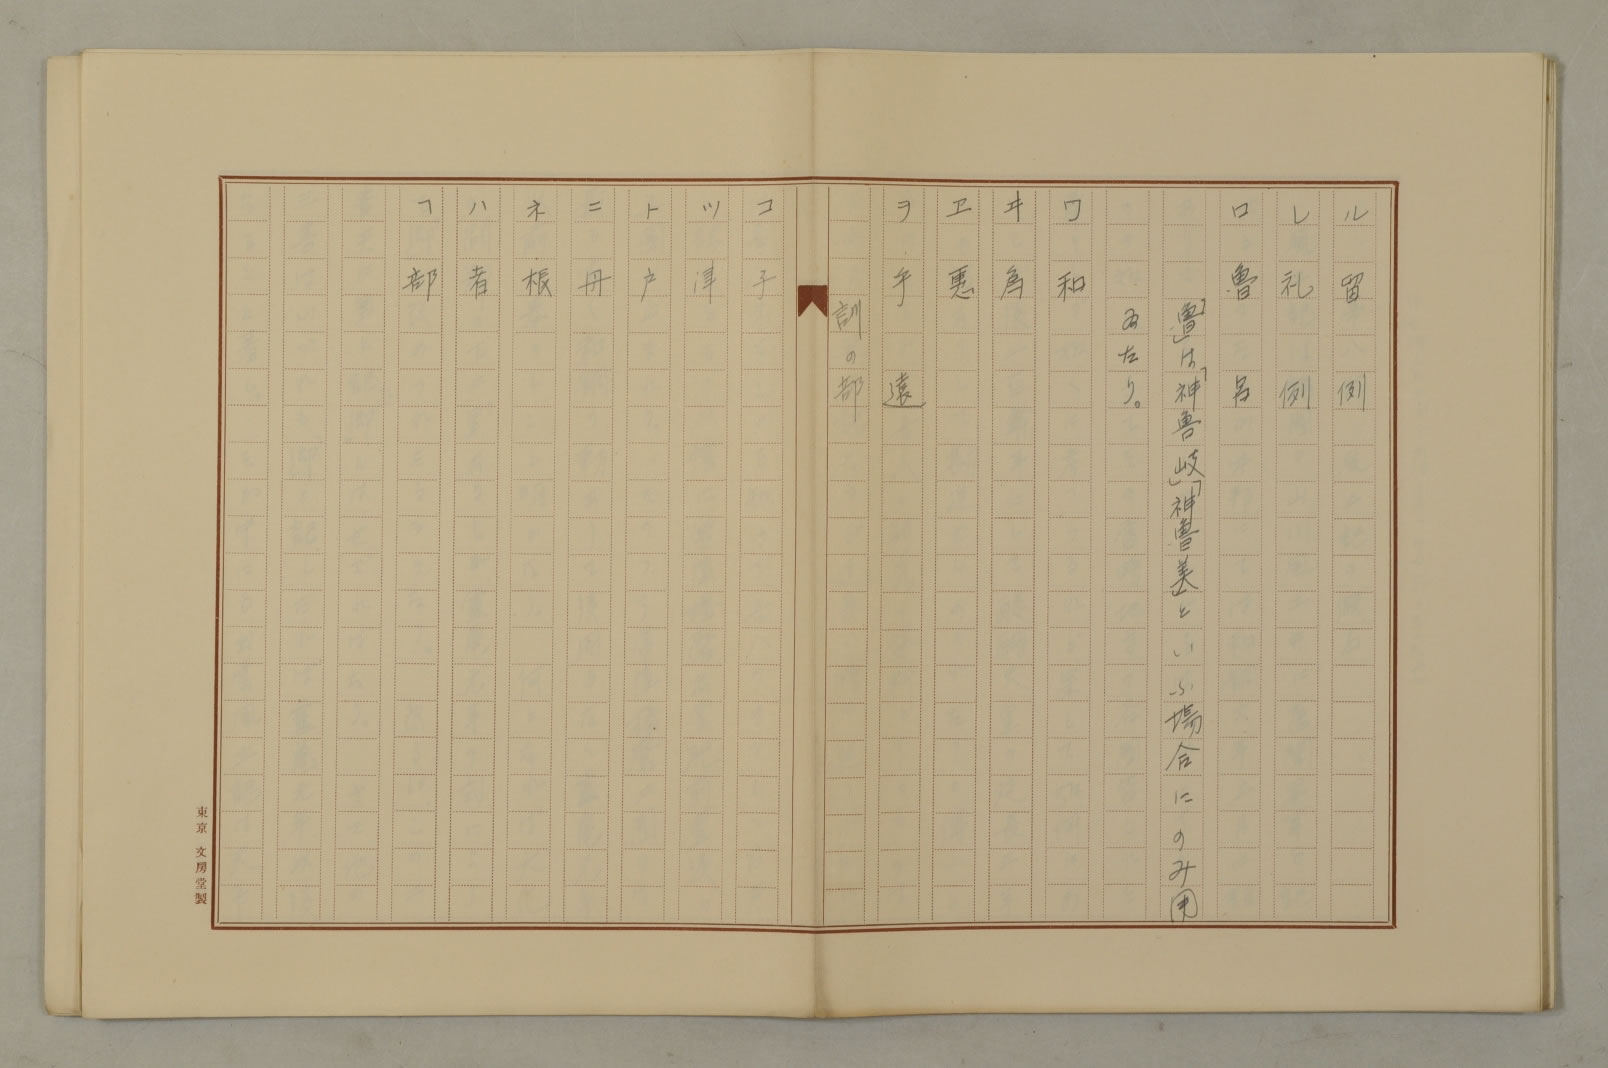 ル 留 例
レ 礼 例
ロ 魯 呂
「魯」は「神魯岐」「神魯美」といふ場合にのみ用
ゐたり。
ワ 和
ヰ 為
ヱ 恵
ヲ 乎 遠
訓の部
コ 子
ツ 津
ト 戸
ニ 丹
ネ 根
ハ 者
ヘ 部
東京 文房堂製